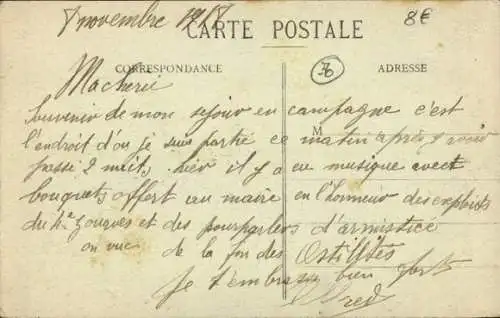 8 novembre 1918
8€
CARTE POSTALE
CORRESPONDANCE
ADRESSE
76
Ma cherie
M
Souvenir de mon sejour en campagne c'est
l'endroit d'ou je suis partie ce matin apres y avoir
passé 2 nuits. hier il y a eu musique avec
bouquets offert au maire en l'honneur des exploits
du 4e Zouaves et des pourparlers d'armistice
en vue de la fin des Ostilités
Je t'embrasse bien fort